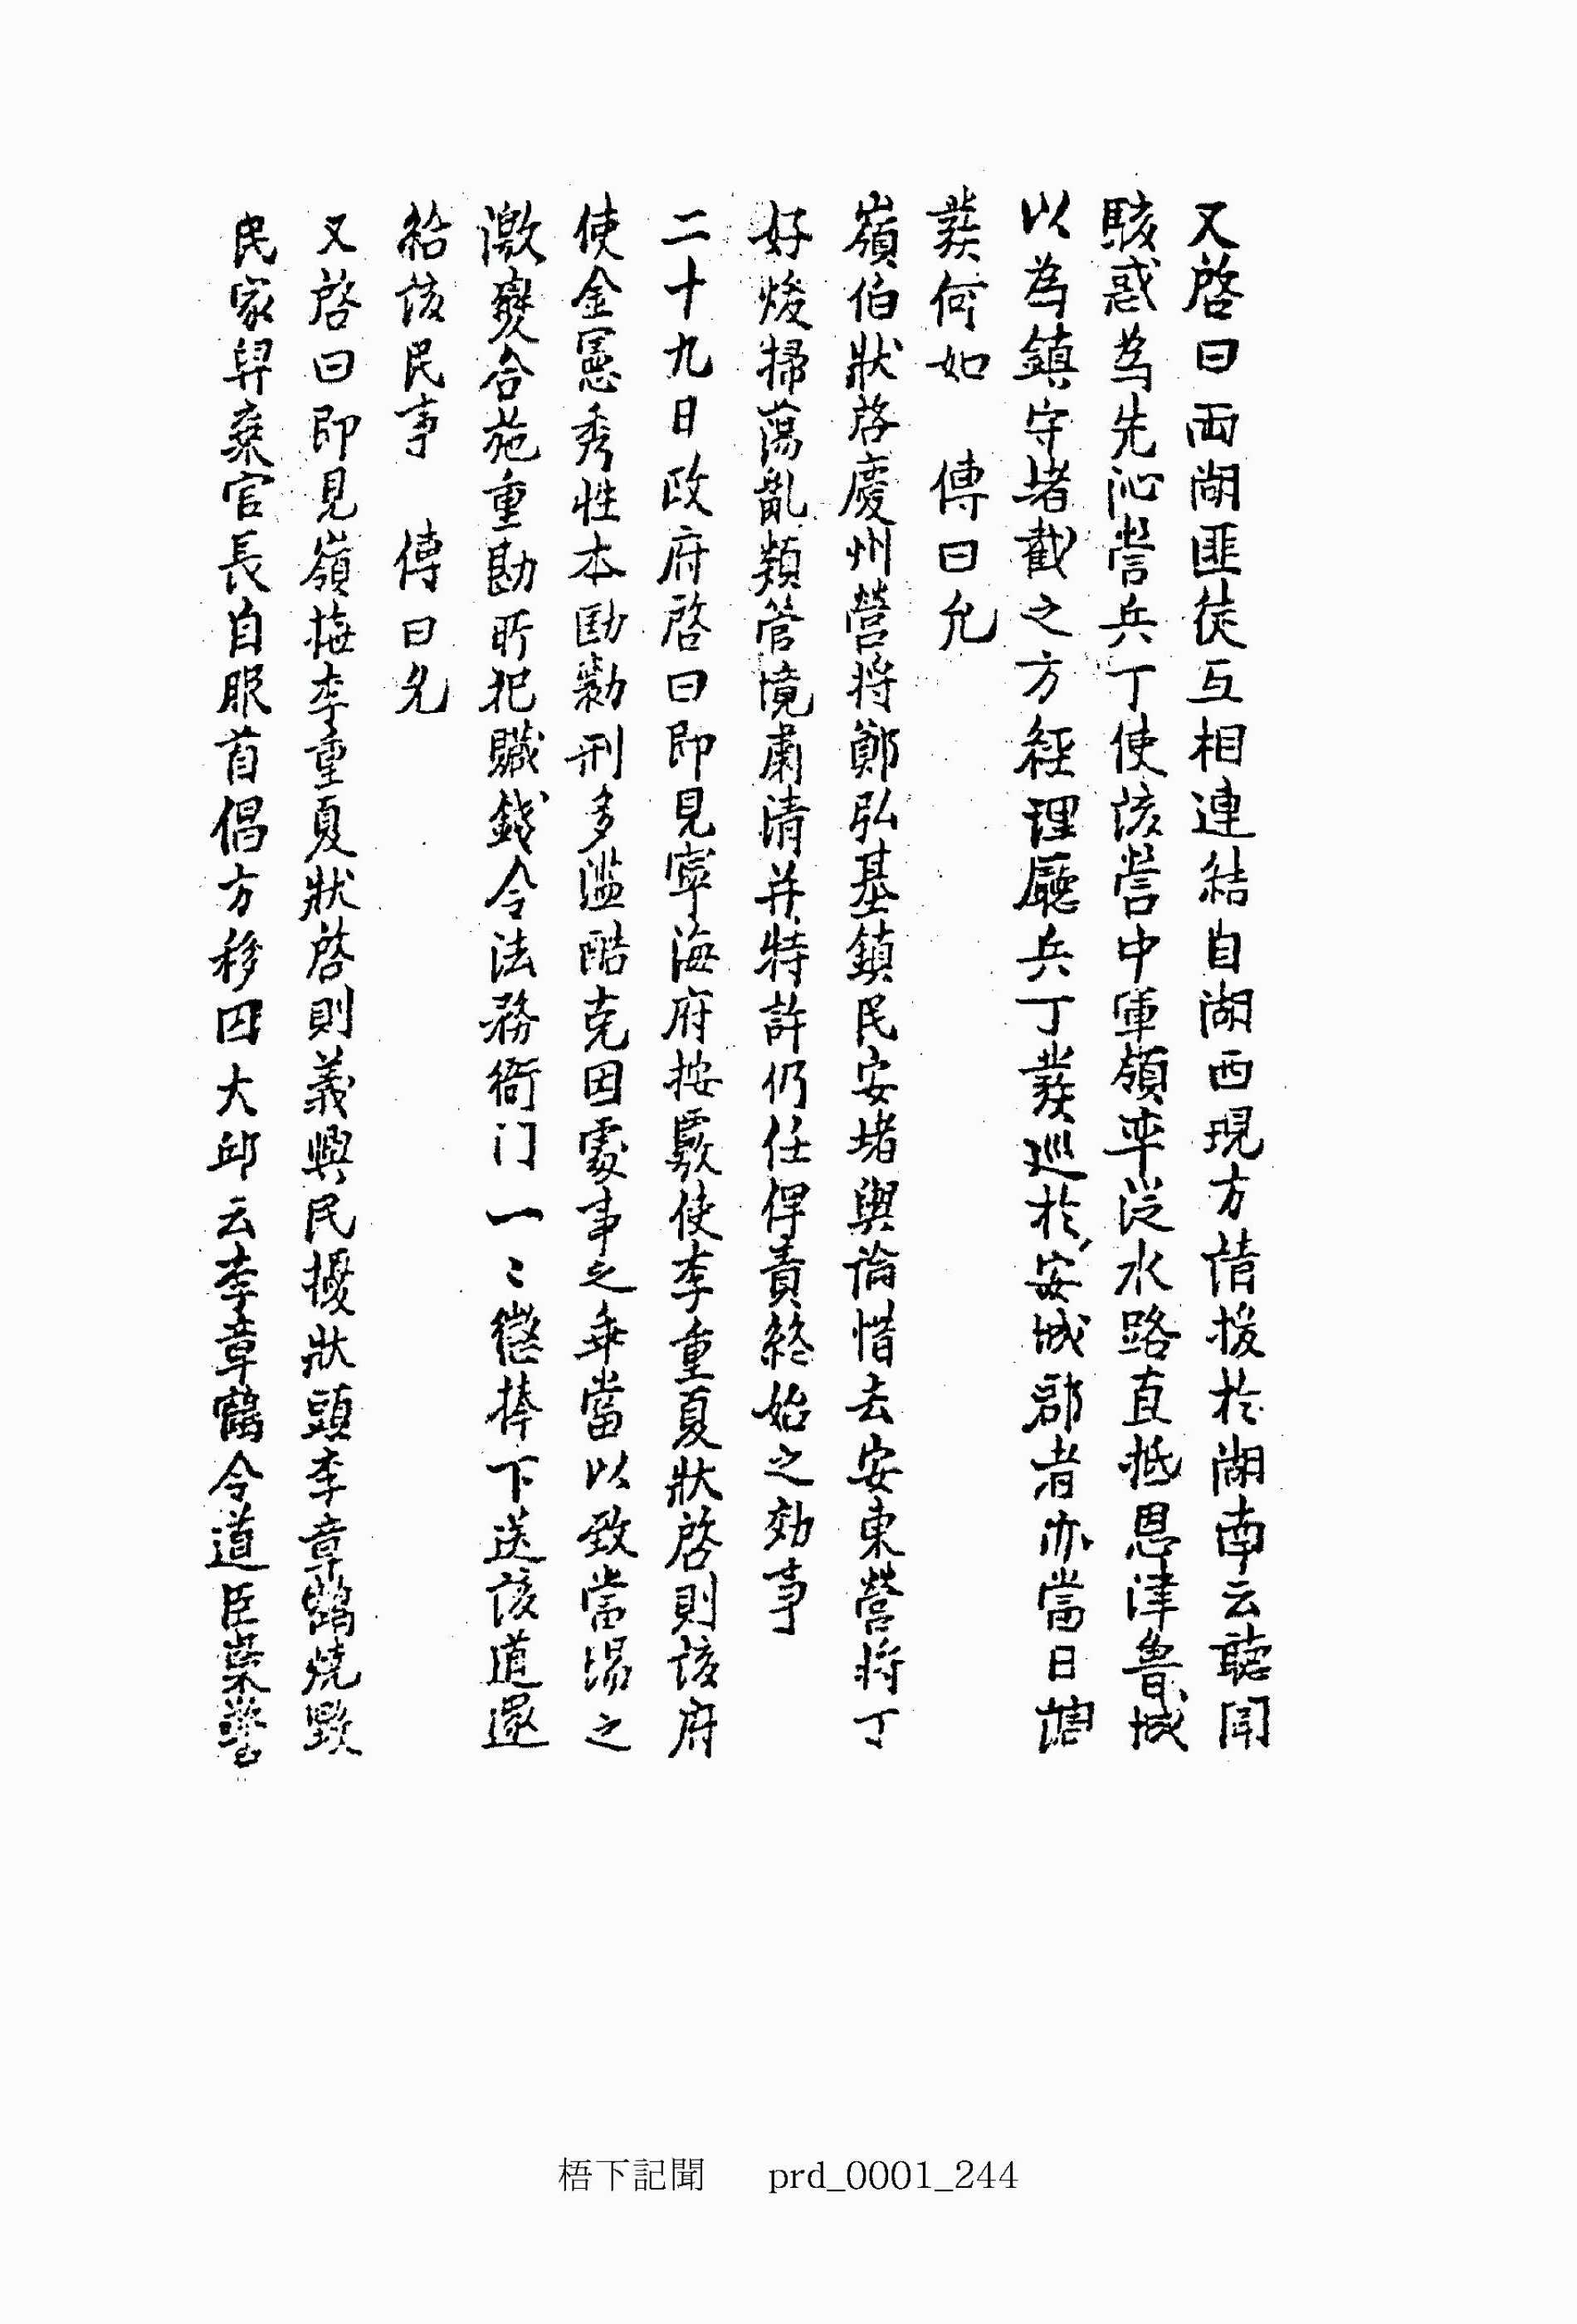 又啓曰両湖匪徒互相連結自湖西現方借援於湖南云聽聞
駭惑為先沁營兵丁使該營中軍領率泛水路直抵恩津魯城
以為鎮守堵截之方經理廳兵丁發巡於安城郡者亦當日調
發何如　傳曰允
嶺伯狀啓慶州營将鄭弘基鎮民安堵輿論惜去安東營将丁
好焌掃蕩亂類管境肅清并特許仍任俾責終始之効事
二十九日政府啓曰即見寧海府按覈使李重夏狀啓則該府
使金憲秀性本勘勦刑多濫酷克因處事之乖當以致當場之
激變合施重勘所犯贓錢令法務衙门一〻懲捧下送該道還
給該民事　傳曰允
又啓曰即見嶺撫李重夏狀啓則義興民擾狀頭李章鶴燒毀
民家舁棄官長自服首倡方移囚大邱云李章鶴令道臣梟警